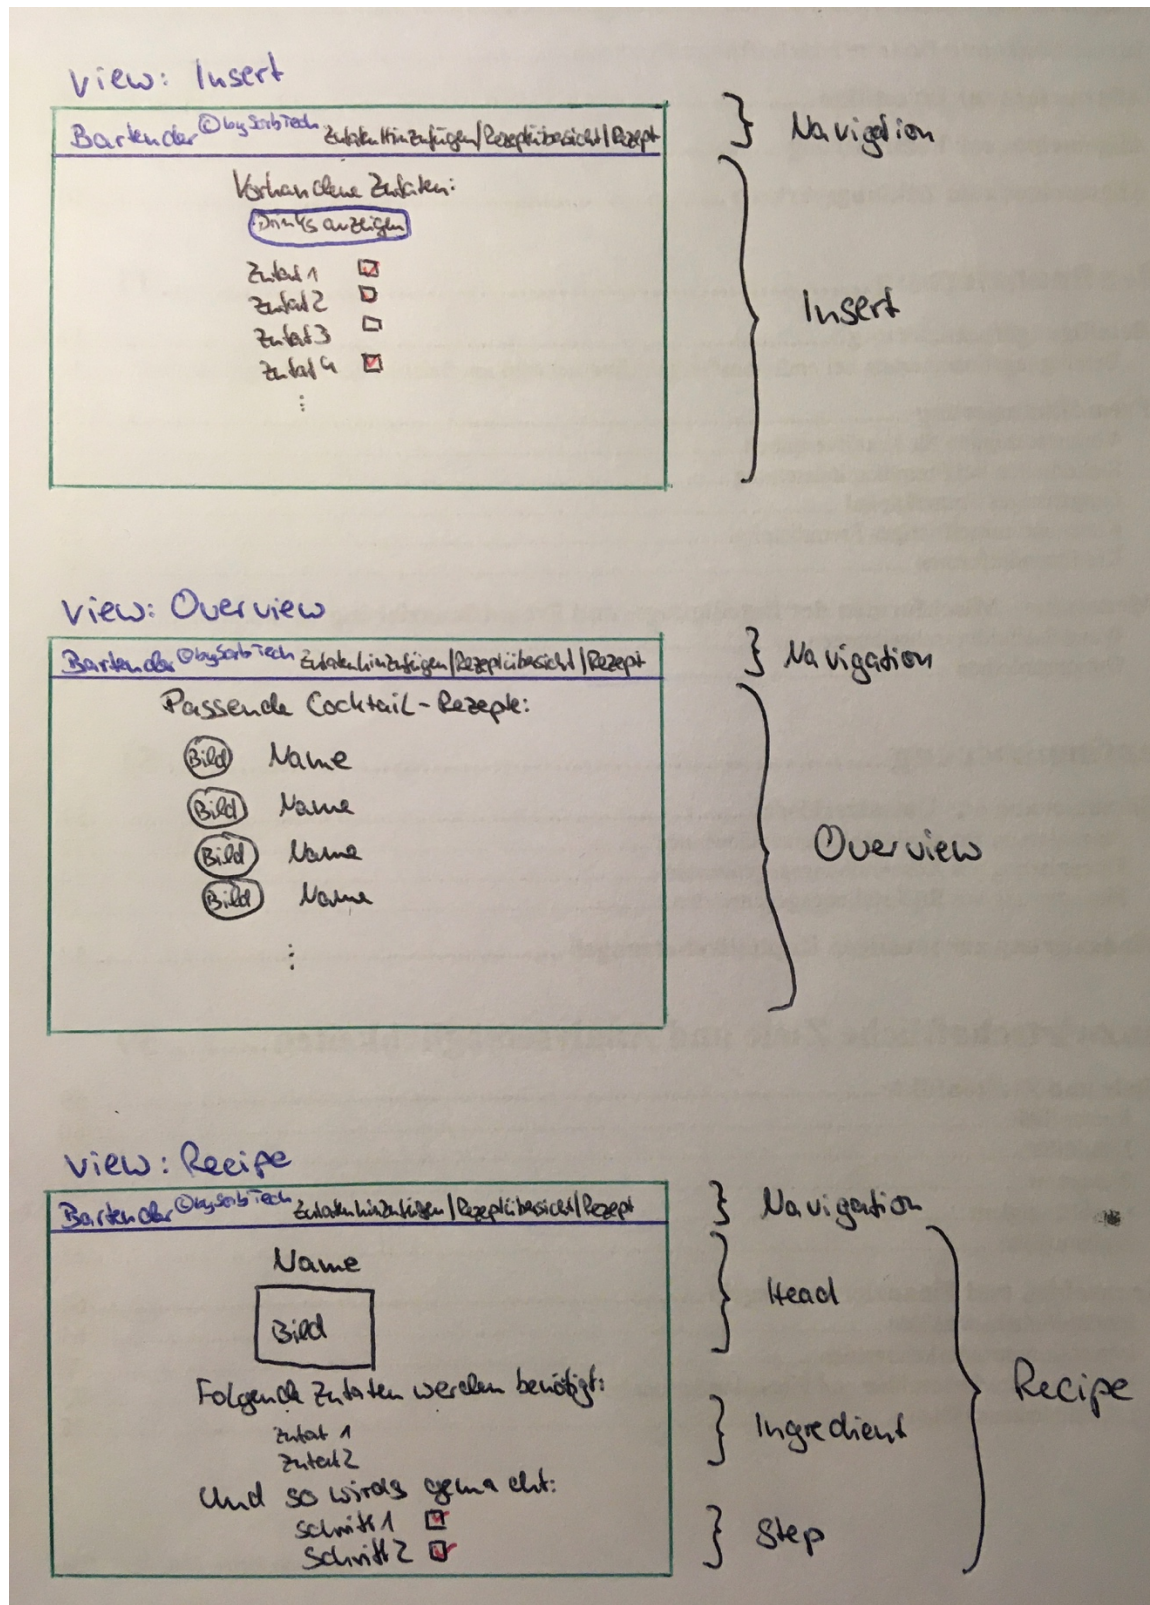 View: Insert
Bartender ©bySorbTech Zutaten Hinzufügen/Rezeptübersicht/Rezept
} Navigation
Vorhandene Zutaten:
Drinks anzeigen
Zutat 1
Zutat 2
Zutat 3
Zutat 4
⋮
} Insert
View: Overview
Bartender ©bySorbTech Zutaten hinzufügen/Rezeptübersicht/Rezept
} Navigation
Passende Cocktail-Rezepte:
Bild Name
Bild Name
Bild Name
Bild Name
⋮
} Overview
View: Recipe
Bartender ©bySorbTech Zutaten hinzufügen/Rezeptübersicht/Rezept
} Navigation
Name
Bild
} Head
Folgende Zutaten werden benötigt:
Zutat 1
Zutat 2
} Ingredient
Und so wirds gemacht:
Schritt 1
Schritt 2
} Step
} Recipe